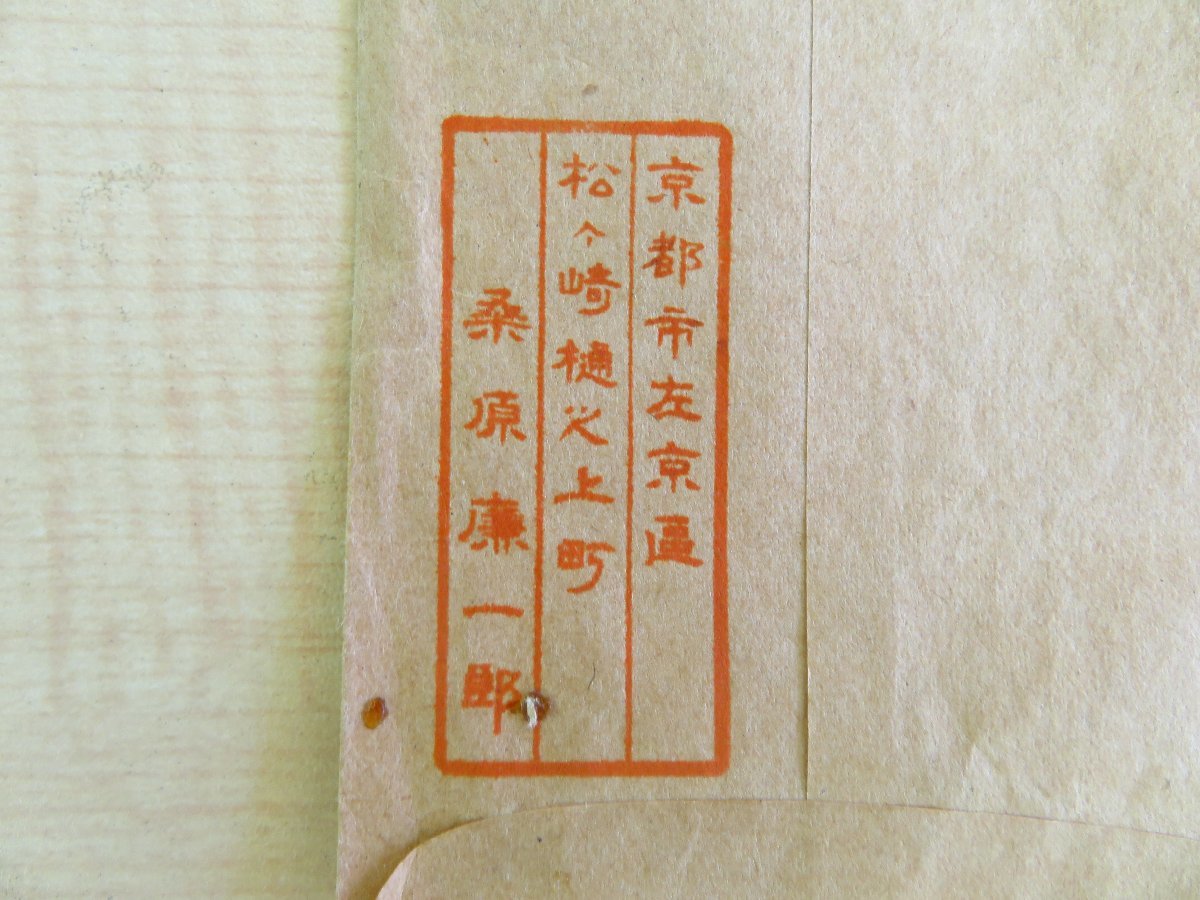 京都市左京區
松ヶ崎樋之上町
桑原廉一郎